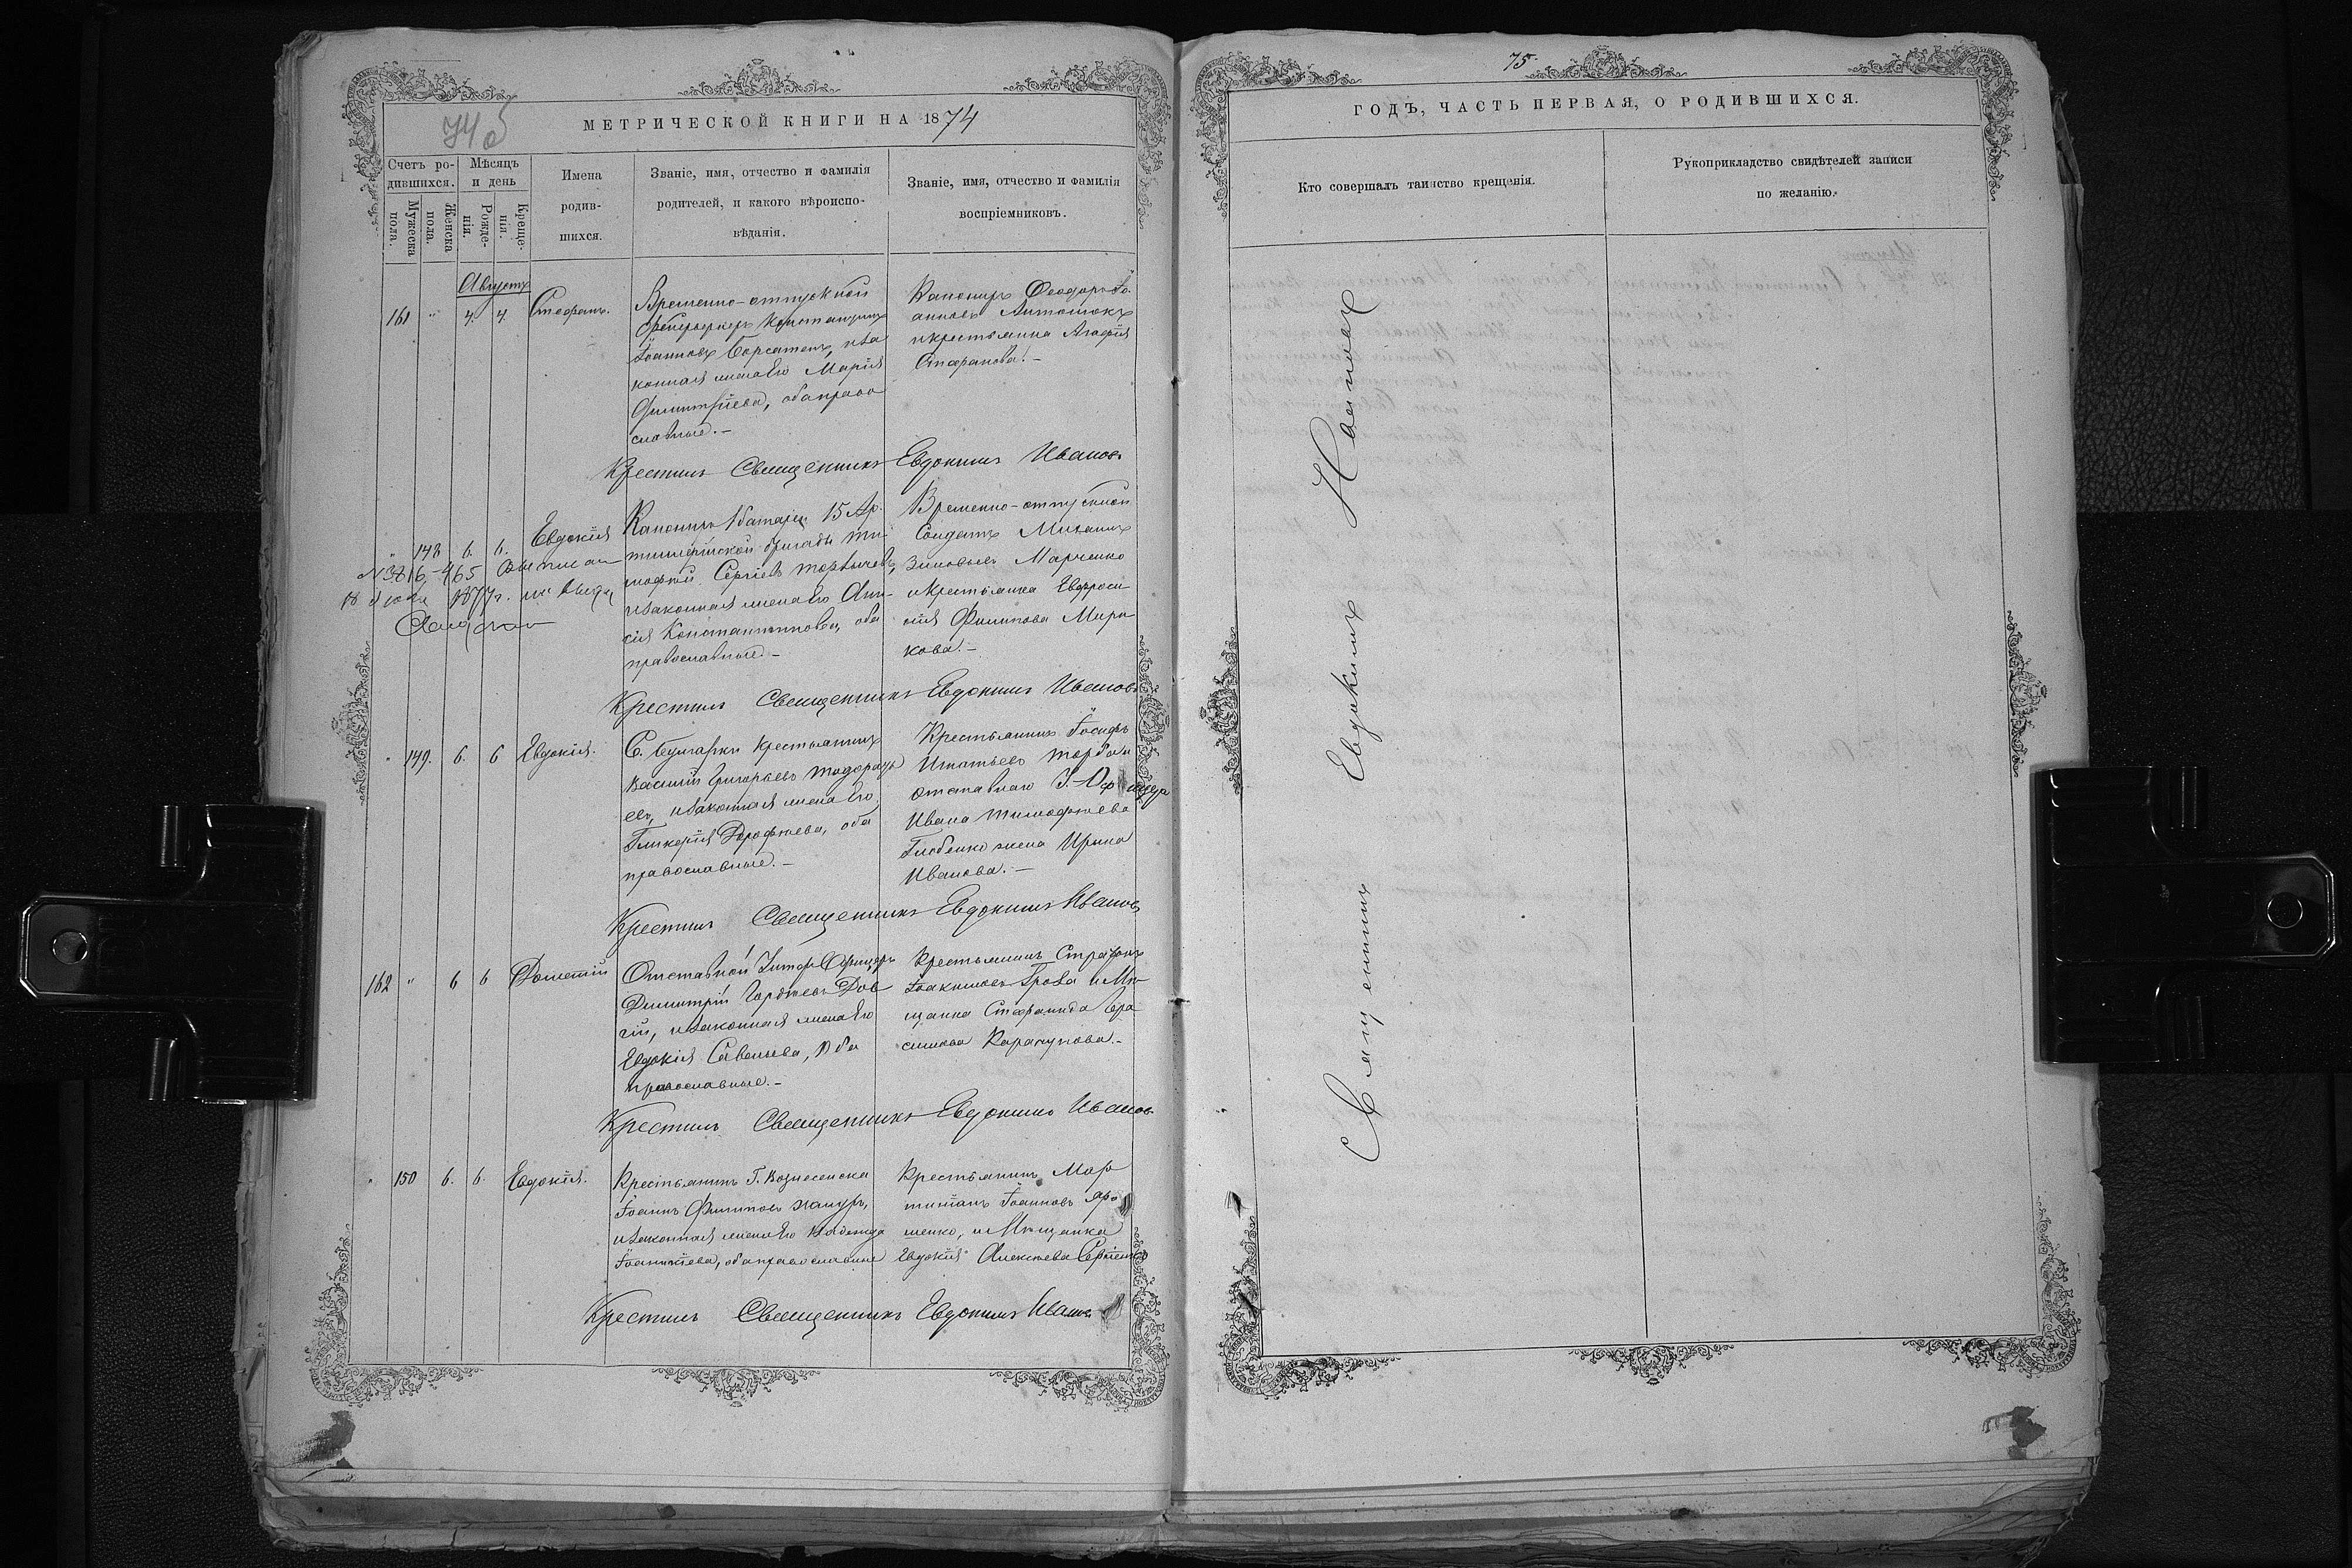 74 б
МЕТРИЧЕСКОЙ КНИГИ НА 1874
Счетъ ро-
дившихся.
Мѣсяцъ
и день
Мужеска
пола.
Женска
пола.
Рожде-
нія.
Креще-
нія.
Имена
родив-
шихся.
Званіе, имя, отчество и фамилія
родителей, и какого вѣроиспо-
вѣданія.
Званіе, имя, отчество и фамилія
воспріемниковъ.
Августъ
161 " 4. 4. Стефанъ.
Временно-отпускной
Фейерверкеръ Константинъ
Іоанновъ и за
конная жена его Марія
Димитріева, оба право
славные.-
Канониръ Ѳеодоръ Іо
анновъ Антонюкъ
и крестьянка Агафія
Стефанова.-
Крестилъ Священникъ Евдокимъ Ивановъ
" 148 6. 6. Евдокія
Канониръ 1 батареи 15 Ар
тиллерійской бригады Ти
мофей Сергіевъ
и законная жена его Ани-
сія Константинова, оба
православные.-
Временно-отпускной
Солдатъ Михаилъ
Зиновьевъ Марченко
и крестьянка Евфроси
нія Филипова Миро
кова.-
№ 3816-465
18 1877 г.
Крестилъ Священникъ Евдокимъ Ивановъ
" 149. 6. 6 Евдокія.
С. Булгарки крестьянинъ
Василій Григорьевъ Тодораш
евъ, и законная жена его
Гликерія Дорофѣева, оба
православные.-
Крестьянинъ Іосифъ
Игнатьевъ
отставнаго У.-Офицера
Ивана Тимофѣева
жена Ирина
Иванова.-
Крестилъ Священникъ Евдокимъ Ивановъ
162 " 6 6 Дометій
Отставной Унтеръ Офицеръ
Димитрій Гордѣевъ Дов
гій, и законная жена его
Евдокія Савельева, оба
православные.-
Крестьянинъ
Іоакимовъ и Мѣ
щанка Стефанида Гера
симова Каракунова.-
Крестилъ Священникъ Евдокимъ Ивановъ
" 150 6. 6. Евдокія.
Крестьянинъ Г. Вознесенска
Іоаннъ Филиповъ
и законная жена его Надежда
оба православные
Крестьянинъ Мар
Іоанновъ Яро
шенко, и Мѣщанка
Евдокія Алексѣева Сергіенко
Крестилъ Священникъ Евдокимъ Ивановъ
75.
ГОДЪ, ЧАСТЬ ПЕРВАЯ, О РОДИВШИХСЯ.
Кто совершалъ таинство крещенія.
Рукоприкладство свидѣтелей записи
по желанію.
Священникъ Евдокимъ Ивановъ